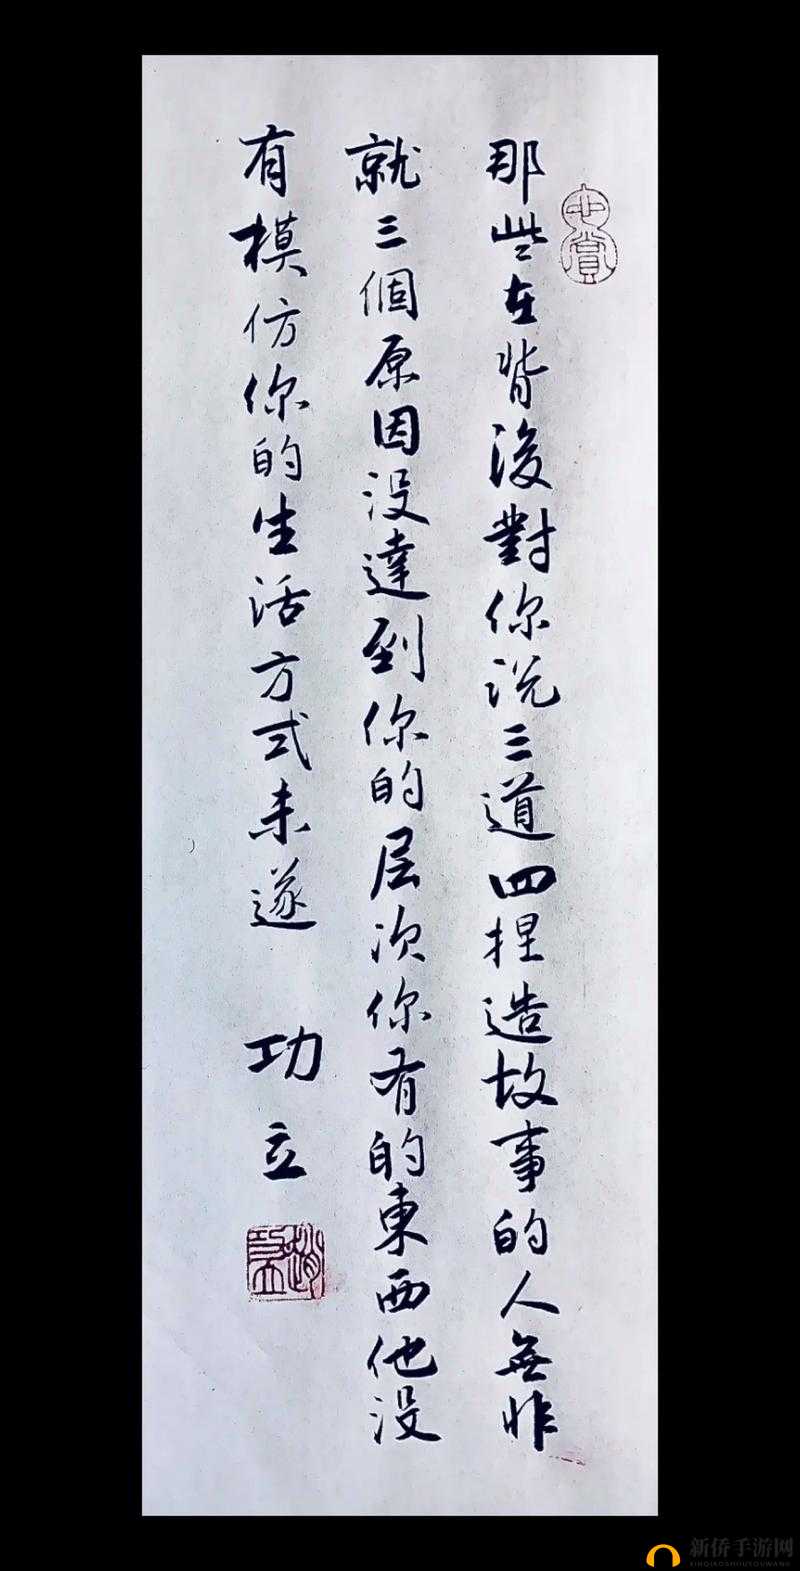 那些在背後對你说三道四捏造故事的人無非
就三個原因没達到你的层次你有的東西他没
有模仿你的生活方式未遂
功立
新侨手游网
XINQIAOSHOUYOUWANG